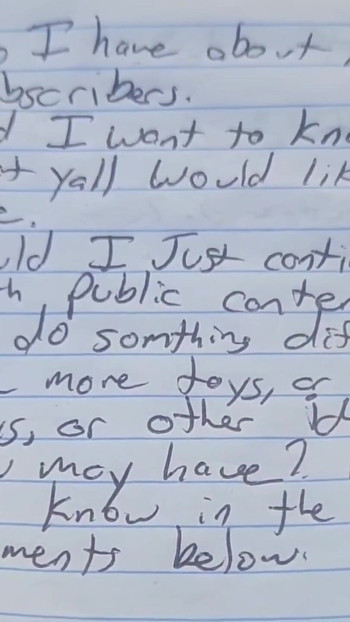 I have about
bscribers.
I want to kn
yall would li
I Just conti
public conte
do somthing dif
more toys, or
s, or other id
may have?
know in the
ments below.